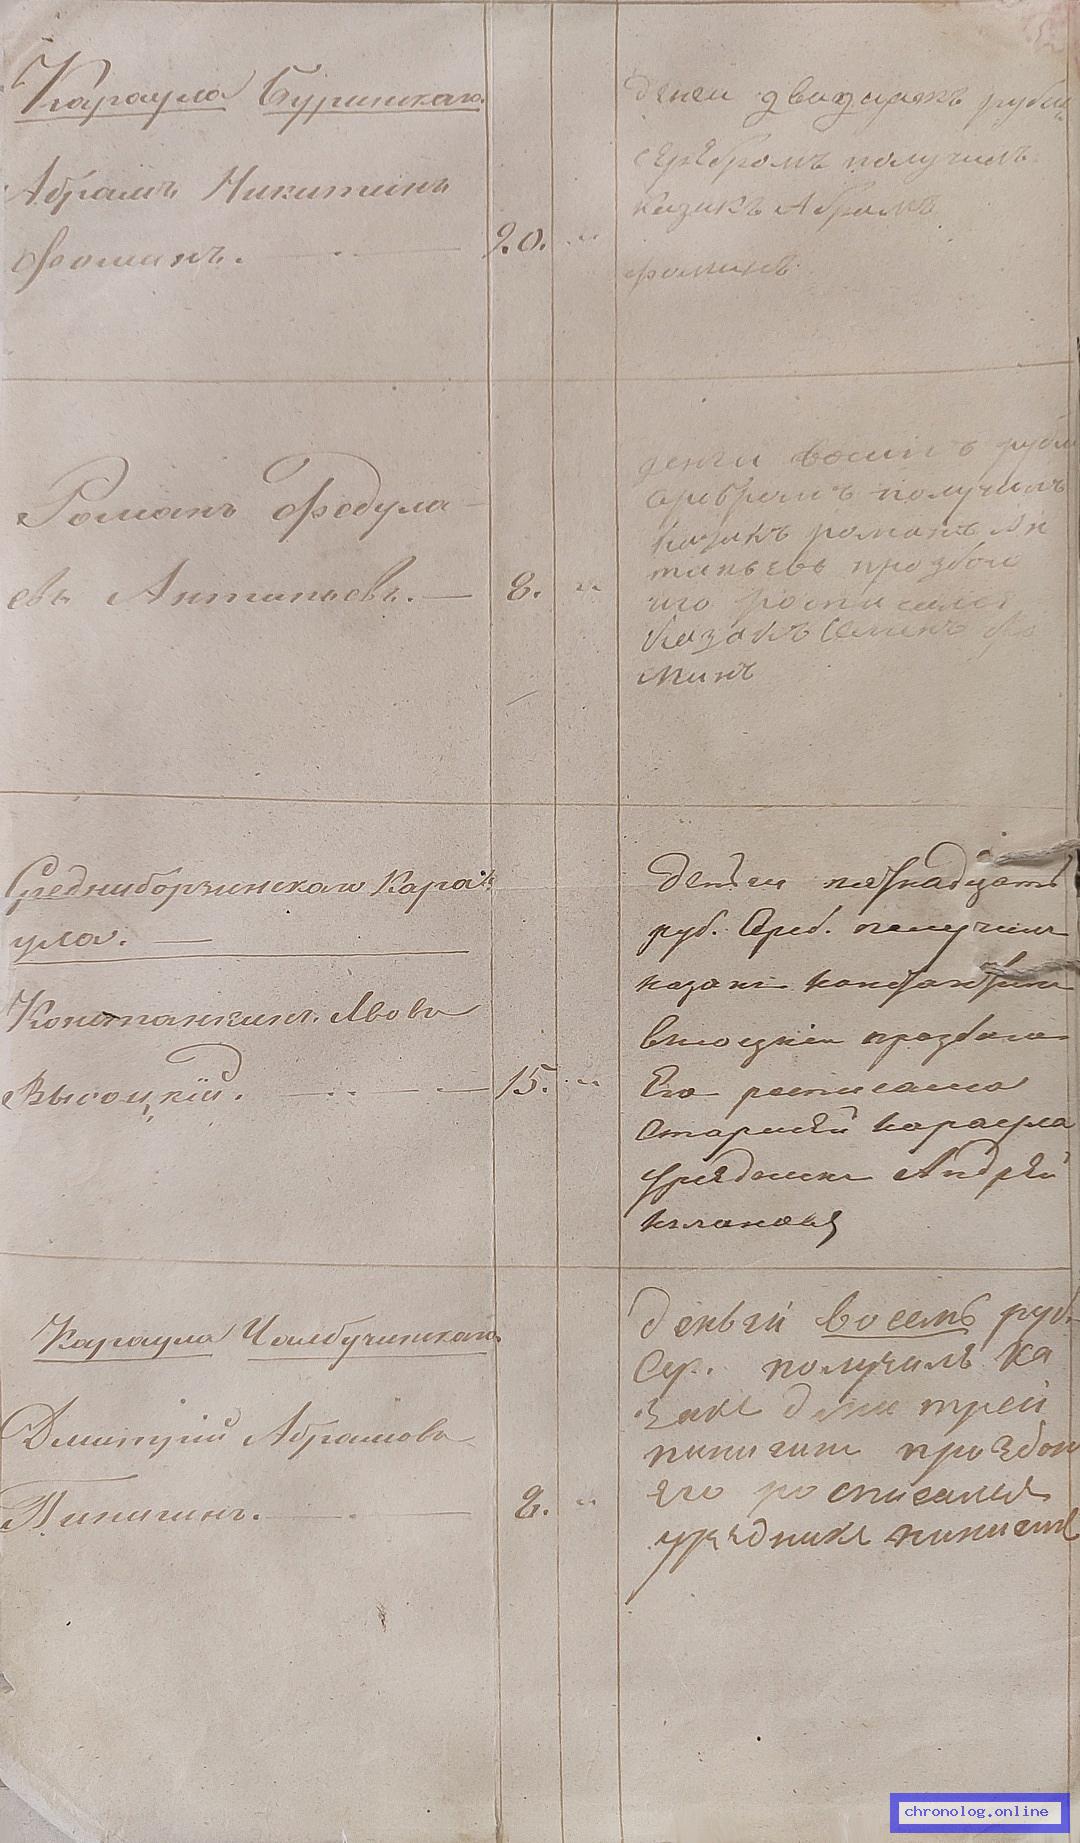 Караула Буринскаго.
Абрамъ Никитинъ
Фоминъ.
20. "
денги двадцать рубли
серебромъ получилъ
казакъ Абрамъ
фоминъ
Романъ Федула-
евъ Антипьевъ. —
8. "
денги восимъ рубли
сребромъ получилъ
казакъ романъ Ан
типьевъ прозбои
иго росписался
Казакъ Семенъ Фо
минъ
Среднеборзинскаго Кара-
ула. —
Константинъ Львовъ
Высоцкій.
15. "
Денги пятнадцать
руб. Среб. получилъ
казакъ константинъ
высоцкии прозбою
Его росписался
старшей караула
урядникъ Андрей
Караула Чалбучинскаго
Дмитрій Абрамовъ
Пинигинъ.
8. "
деньги восемь руб.
Сер. получилъ Ка
закъ дми трей
пинигинъ прозбои
его росписался
урядникъ пинигинъ
chronolog.online